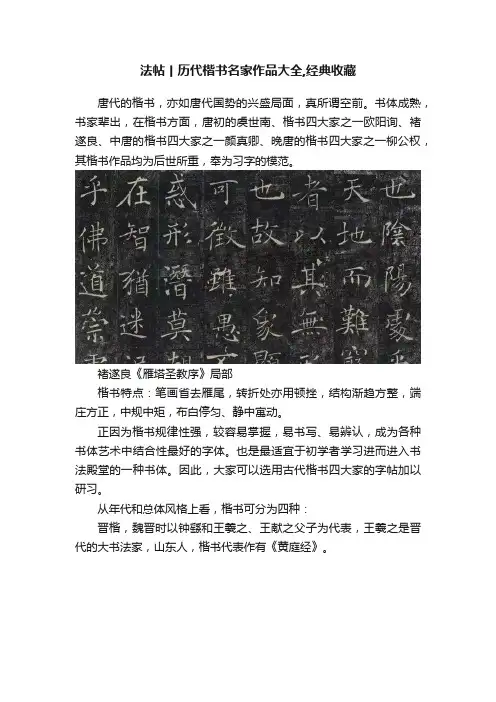 法帖 | 历代楷书名家作品大全,经典收藏
唐代的楷书，亦如唐代国势的兴盛局面，真所谓空前。书体成熟，
书家辈出，在楷书方面，唐初的虞世南、楷书四大家之一欧阳询、褚
遂良、中唐的楷书四大家之一颜真卿、晚唐的楷书四大家之一柳公权，
其楷书作品均为后世所重，奉为习字的模范。
也陰陽處
天地而難
者以其無
也故知象
可徵雖愚
惑形潛莫
在智猶迷
乎佛道崇
褚遂良《雁塔圣教序》局部
楷书特点：笔画省去雁尾，转折处亦用顿挫，结构渐趋方整，端
庄方正，中规中矩，布白停匀、静中寓动。
正因为楷书规律性强，较容易掌握，易书写、易辨认，成为各种
书体艺术中结合性最好的字体。也是最适宜于初学者学习进而进入书
法殿堂的一种书体。因此，大家可以选用古代楷书四大家的字帖加以
研习。
从年代和总体风格上看，楷书可分为四种：
晋楷，魏晋时以钟繇和王羲之、王献之父子为代表，王羲之是晋
代的大书法家，山东人，楷书代表作有《黄庭经》。